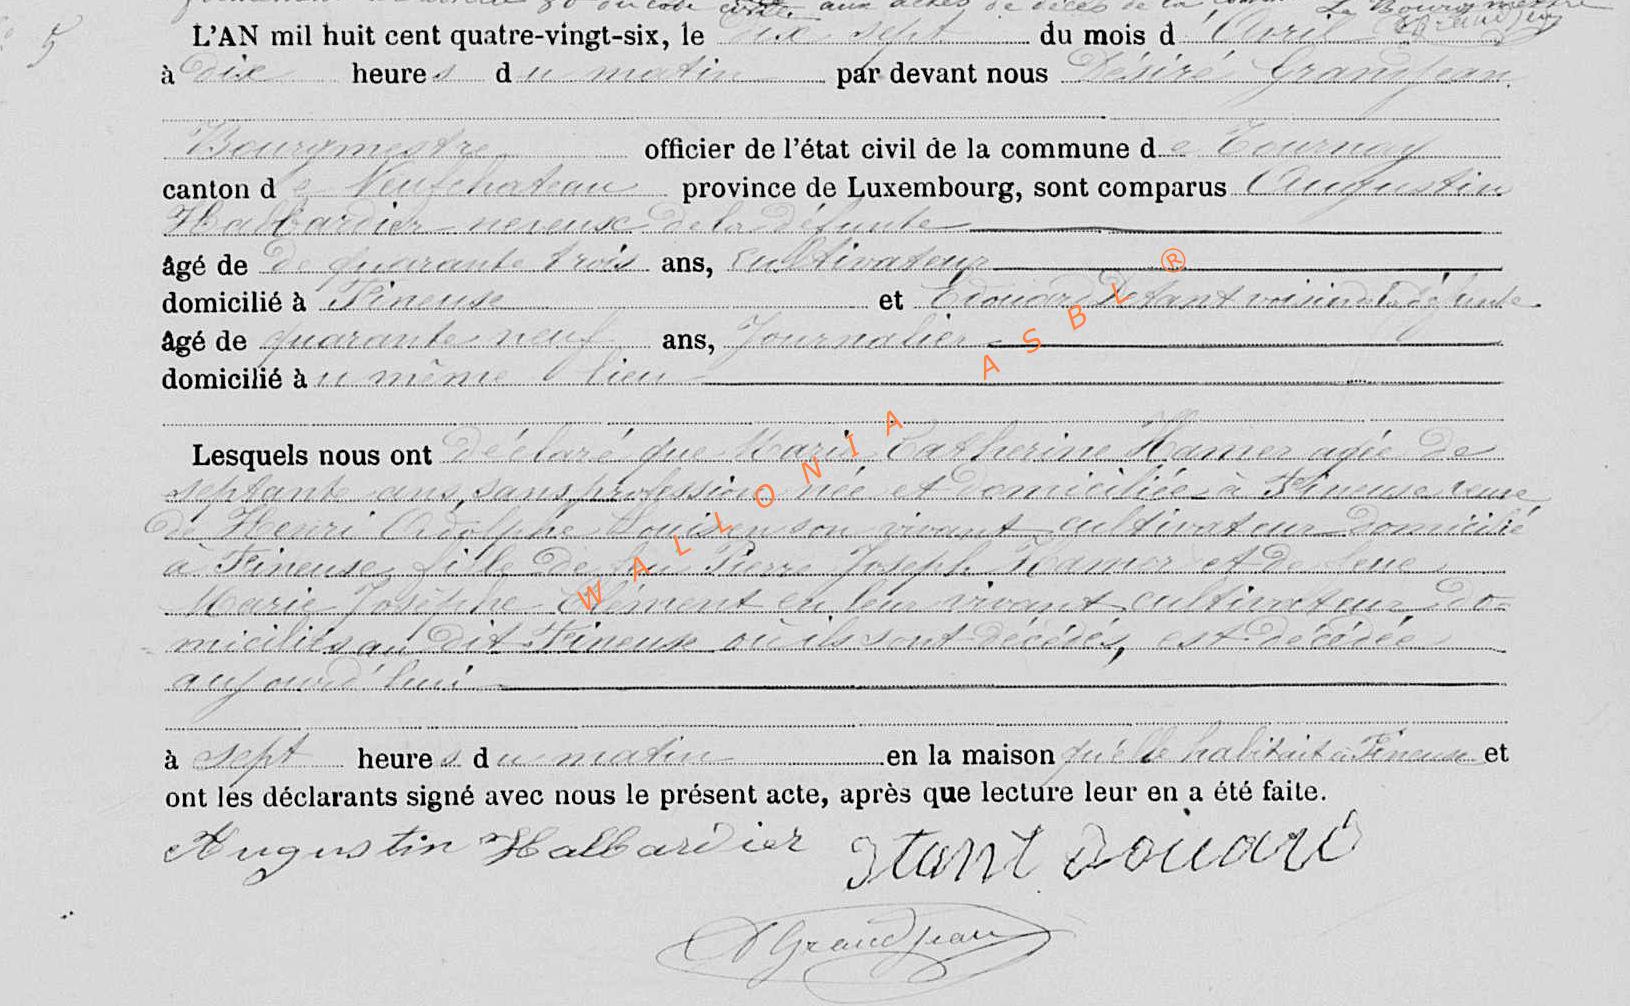 aux actes de décès de la Le Bourgmestre
5 L'AN mil huit cent quatre-vingt-six, le dix sept du mois d'Avril Grandjean
à dix heures du matin par devant nous Désiré Grandjean
Bourgmestre officier de l'état civil de la commune de Tournay
canton de Neufchateau province de Luxembourg, sont comparus Augustin
Halbardier neveux de la défunte
âgé de de quarante trois ans, Cultivateur
domicilié à Fineuse et Edouard voisin de la défunte
âgé de quarante neuf ans, Journalier
domicilié à u même lieu
Lesquels nous ont déclaré que Marie Catherine Hamer agée de
septante ans, sans profession née et domiciliée à Fineuse veuve
de Henri Adolphe Louis en son vivant cultivateur domicilié
à Fineuse, fille de feu Pierre Joseph Hamer et de feue
Marie Josèphe Clément en leur vivant cultivateur do-
miciliés au dit Fineuse où ils sont décédés, est décédée
aujourd'hui
à sept heures du matin en la maison qu'elle habitait à Fineuse et
ont les déclarants signé avec nous le présent acte, après que lecture leur en a été faite.
Augustin Halbardier Stant Edouard
D Grandjean
WALLONIA ASBL ®